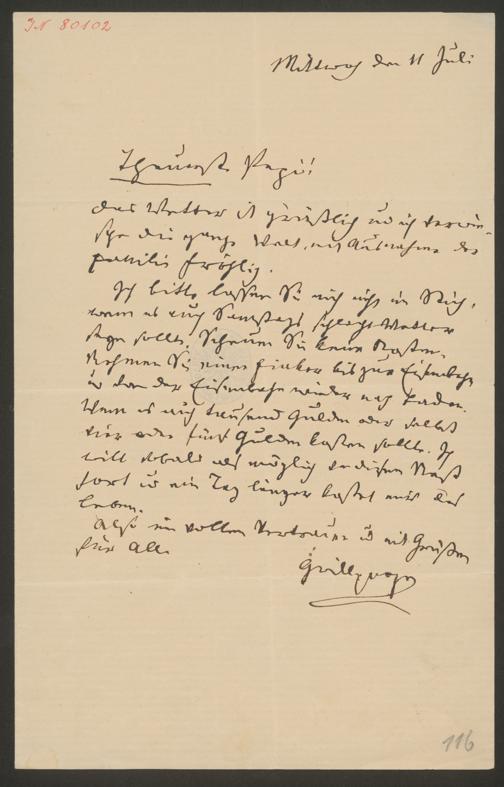 IN 80102
Mittwoch den 11 Juli
Theuerste Pepi!
das Wetter ist gräßlich und ich verwün-
sche die ganze Welt, mit Ausnahme der
Familie Fröhlich.
Ich bitte lassen Sie mich nicht im Stich,
wenn es auch Samstags schlecht Wetter
seyn sollte. Scheuen Sie keine Kosten.
Nehmen Sie einen Fiaker bis zur Eisenbahn
u von der Eisenbahn wieder nach Baden.
Wenn es auch tausend Gulden oder selbst
vier oder fünf Gulden kosten sollte. Ich
will sobald als möglich aus diesem Nest
fort u ein Tag länger kostet mir das
Leben.
Also im vollen Vertrauen u mit Grüßen
für Alle
Grillparzer
116